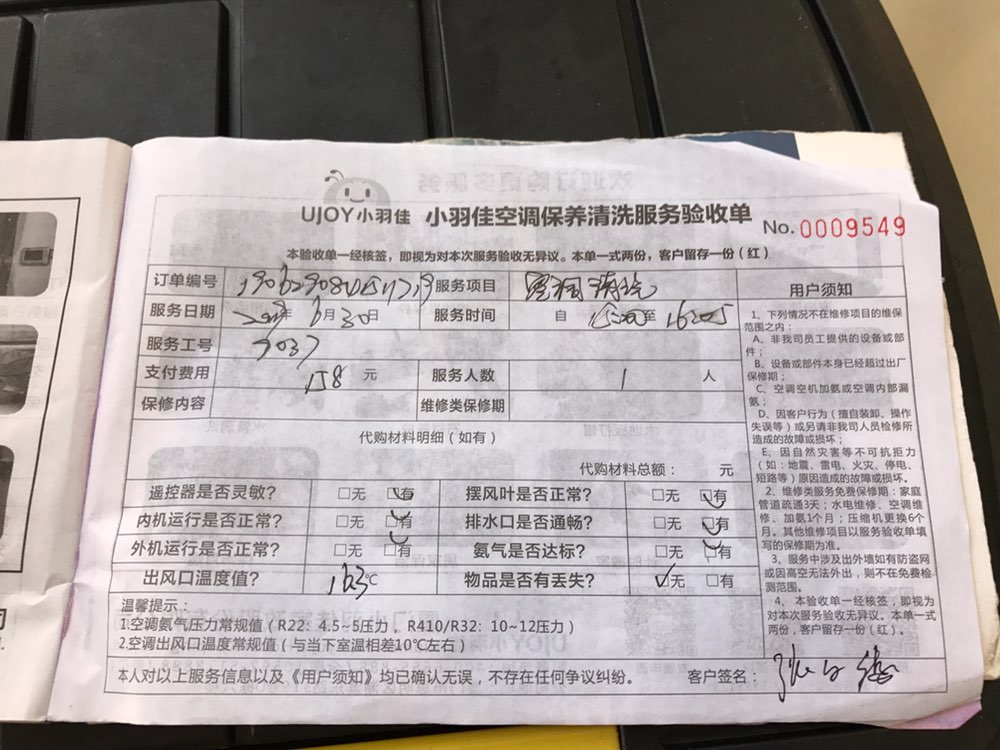 UJOY小羽佳 小羽佳空调保养清洗服务验收单 No. 0009549
本验收单一经核签，即视为对本次服务验收无异议。本单一式两份，客户留存一份（红）
订单编号 服务项目
服务日期 2019年6月30日 服务时间 自 至
服务工号 9037
支付费用 158 元 服务人数 1 人
保修内容 维修类保修期
代购材料明细（如有）
代购材料总额： 元
遥控器是否灵敏？ □无 □有 摆风叶是否正常？ □无 □有
内机运行是否正常？ □无 □有 排水口是否通畅？ □无 □有
外机运行是否正常？ □无 □有 氨气是否达标？ □无 □有
出风口温度值？ ℃ 物品是否有丢失？ □无 □有
温馨提示：
1.空调氨气压力常规值（R22：4.5~5压力，R410/R32：10~12压力）
2.空调出风口温度常规值（与当下室温相差10℃左右）
本人对以上服务信息以及《用户须知》均已确认无误，不存在任何争议纠纷。 客户签名：
用户须知
1、下列情况不在维修项目的维保
范围之内：
A、非我司员工提供的设备或部
件；
B、设备或部件本身已经超过出厂
保修期；
C、空调空机加氨或空调内部漏
氨；
D、因客户行为（擅自装卸、操作
失误等）或另请非我司人员检修所
造成的故障或损坏；
E、因自然灾害等不可抗拒力
（如：地震、雷电、火灾、停电、
短路等）原因造成的故障或损坏。
2、维修类服务免费保修期：家庭
管道疏通3天；水电维修、空调维
修、加氨1个月；压缩机更换6个
月。其他维修项目以服务验收单填
写的保修期为准。
3、服务中涉及出外墙如有防盗网
或因高空无法外出，则不在免费检
测范围。
4、本验收单一经核签，即视为
对本次服务验收无异议。本单一式
两份，客户留存一份（红）。